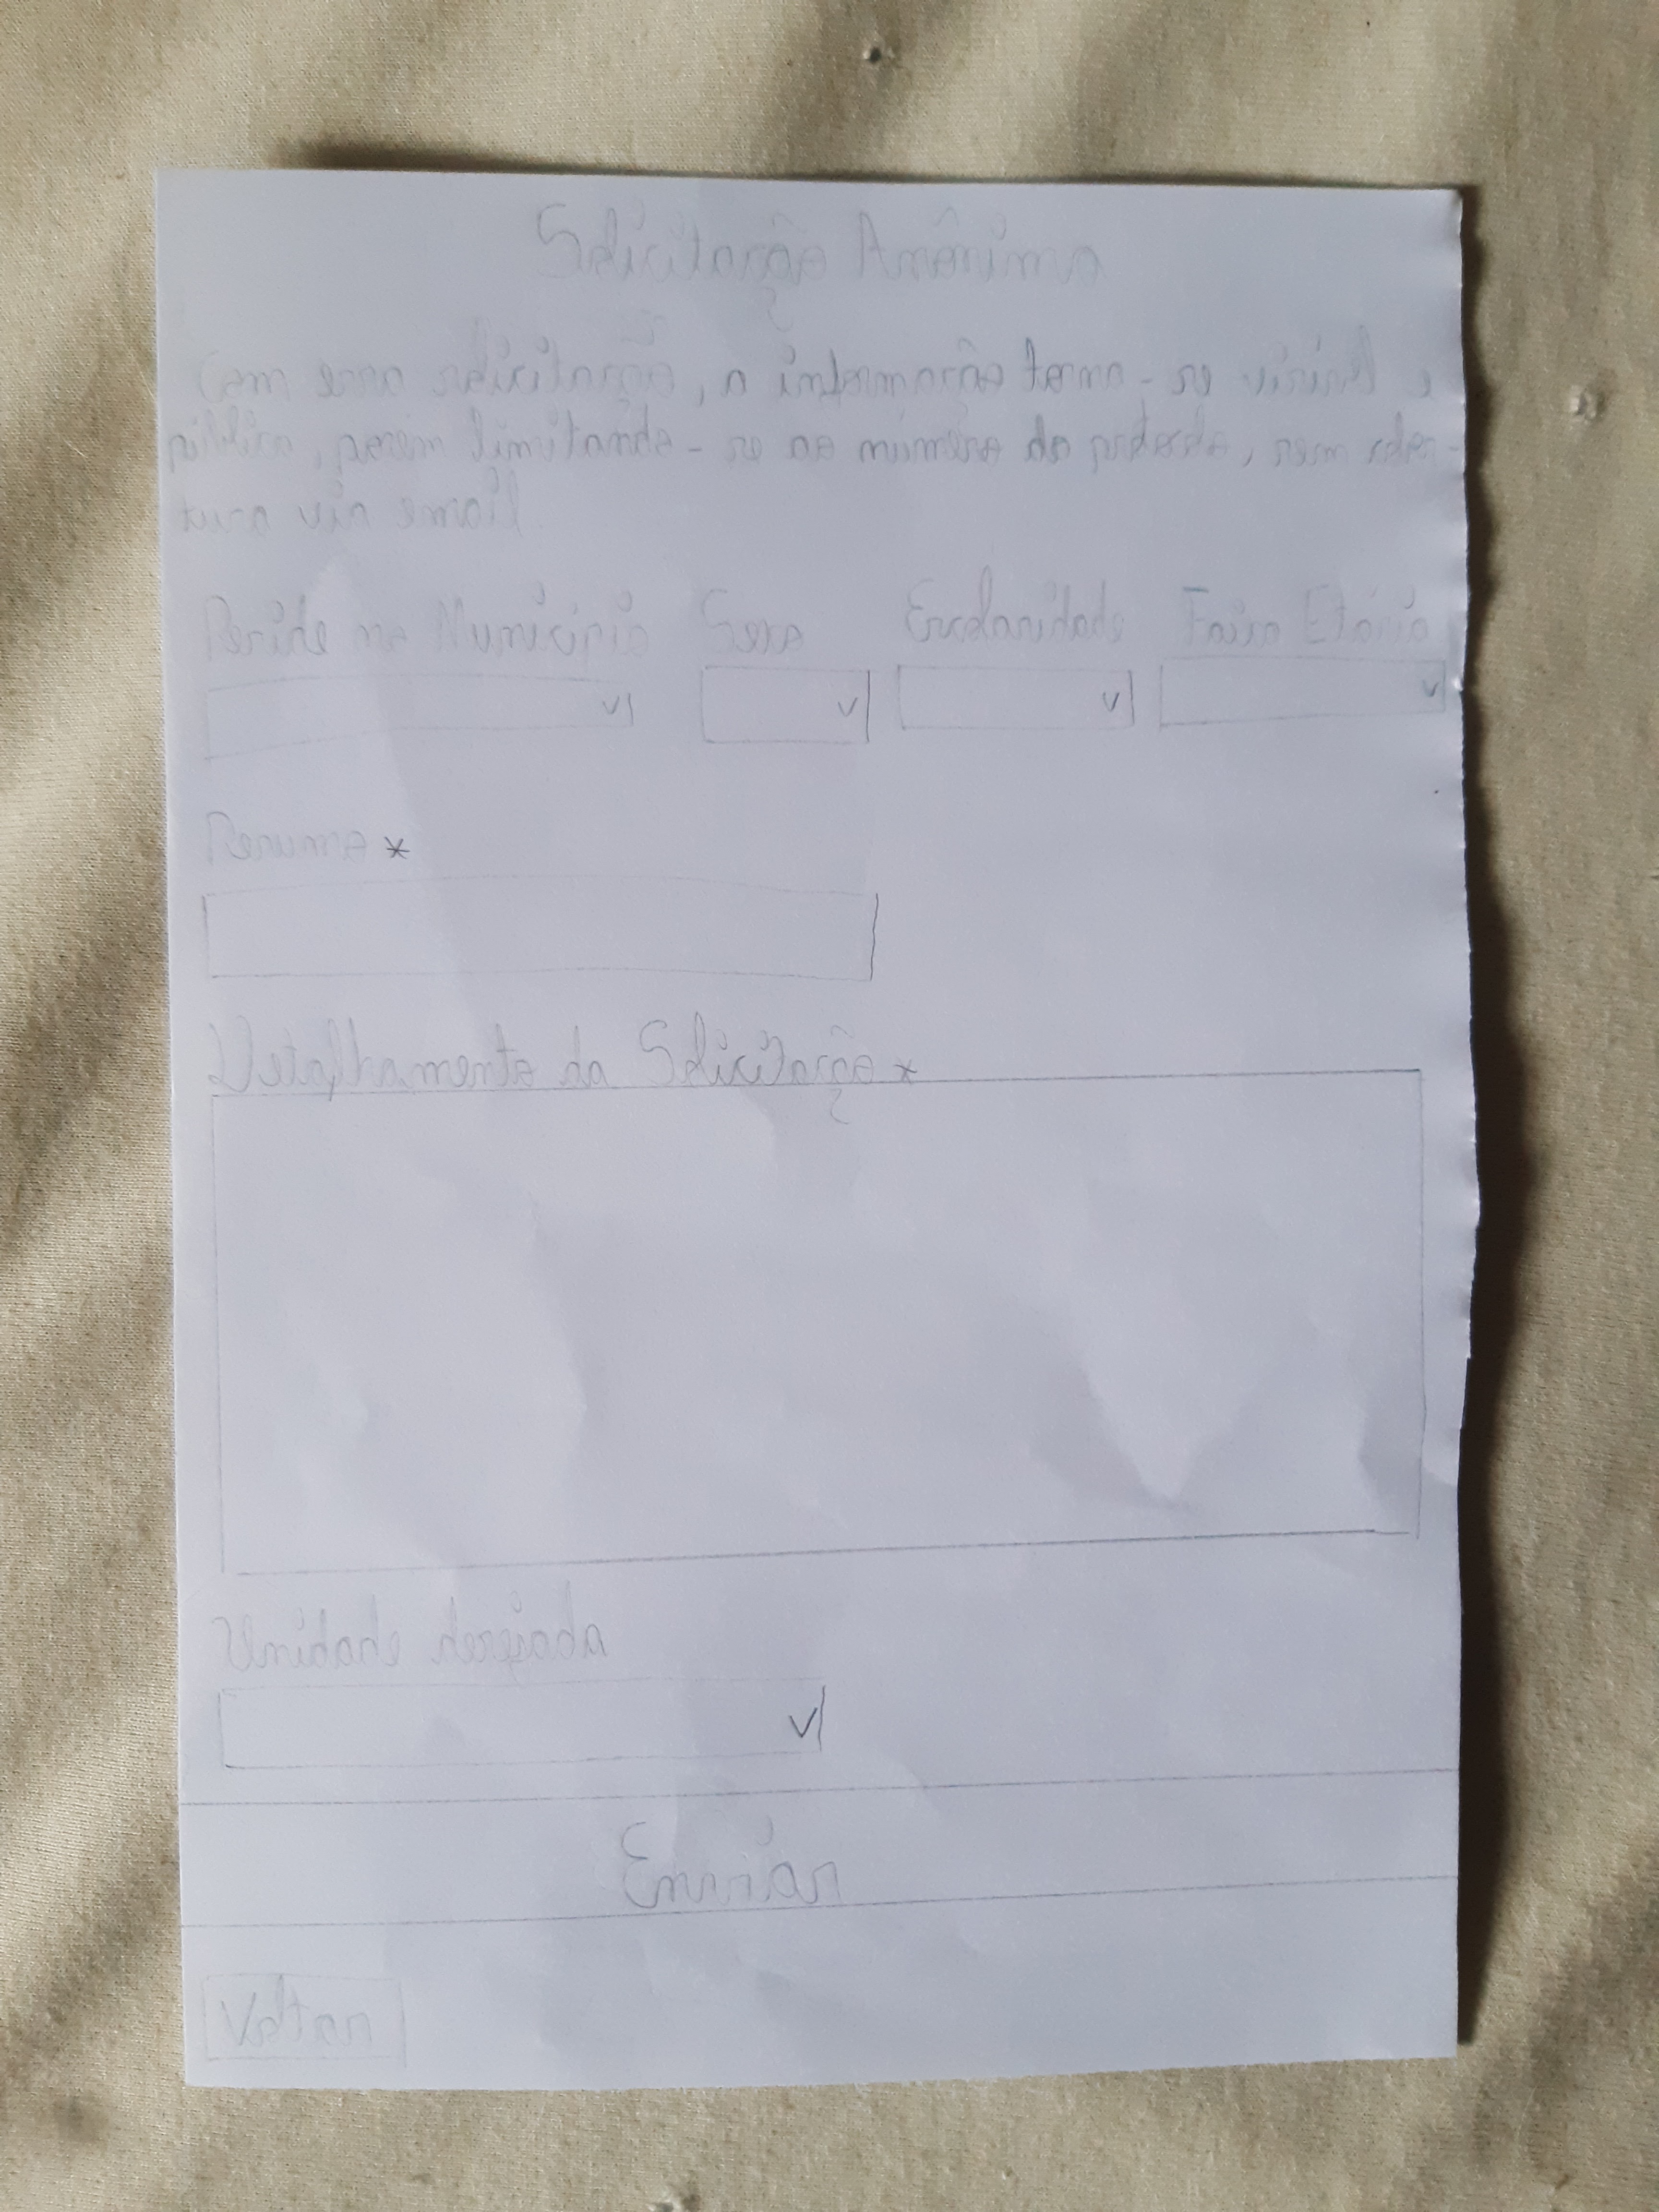 Solicitação Anônima
Com essa solicitação, a informação torna-se visível e
pública, porem limitando-se ao número do protocolo, sem
tura via email
Reside no Município Sexo Escolaridade Faixa Etária
Resumo *
Detalhamento da Solicitação *
Unidade desejada
Enviar
Voltar